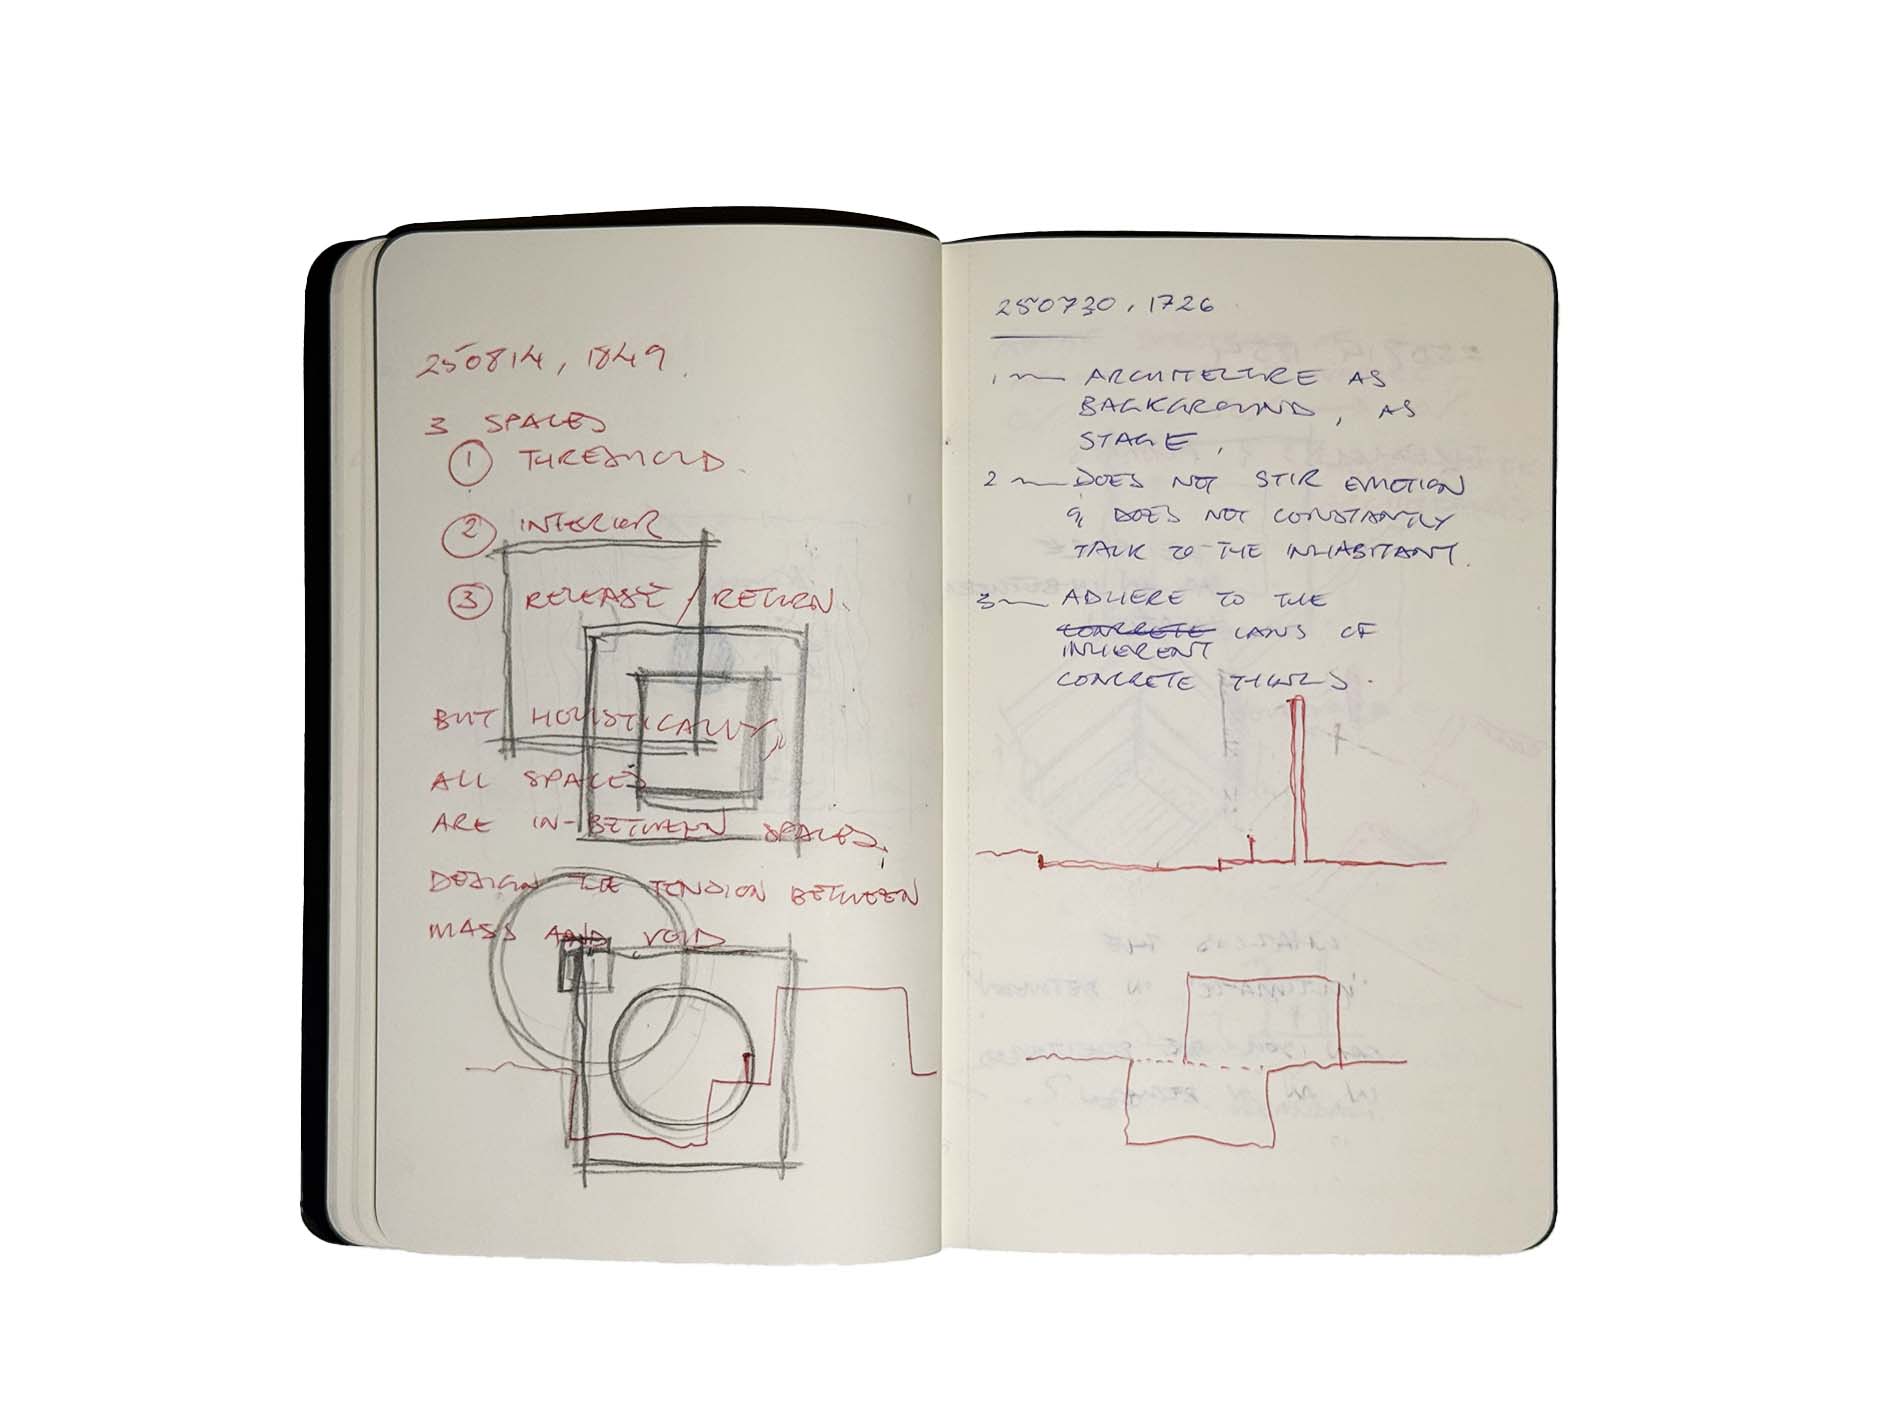 250814, 1849.
3 SPACES
1 THRESHOLD.
2 INTERIOR
3 RELEASE / RETURN.
BUT HOLISTICALLY,
ALL SPACES
ARE IN-BETWEEN SPACES,
DESIGN THE TENSION BETWEEN
MASS AND VOID
250730, 1726.
1 — ARCHITECTURE AS
BACKGROUND, AS
STAGE,
2 — DOES NOT STIR EMOTION
& DOES NOT CONSTANTLY
TALK TO THE INHABITANT.
3 — ADHERE TO THE
CONCRETE LAWS OF
INHERENT
CONCRETE THINGS.